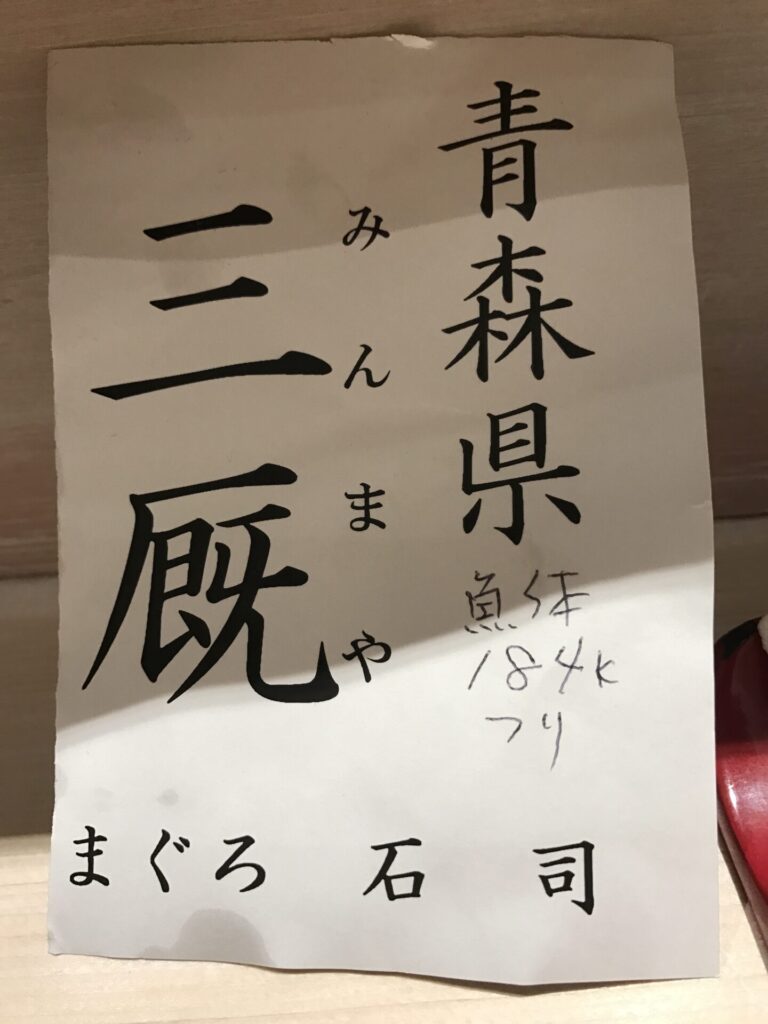 青森県
魚体
184k
つり
みんまや
三厩
まぐろ 石司